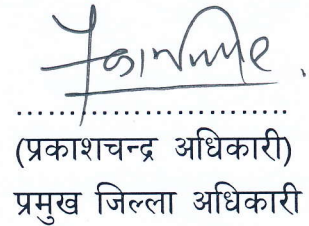 (प्रकाशचन्द्र अधिकारी)
प्रमुख जिल्ला अधिकारी